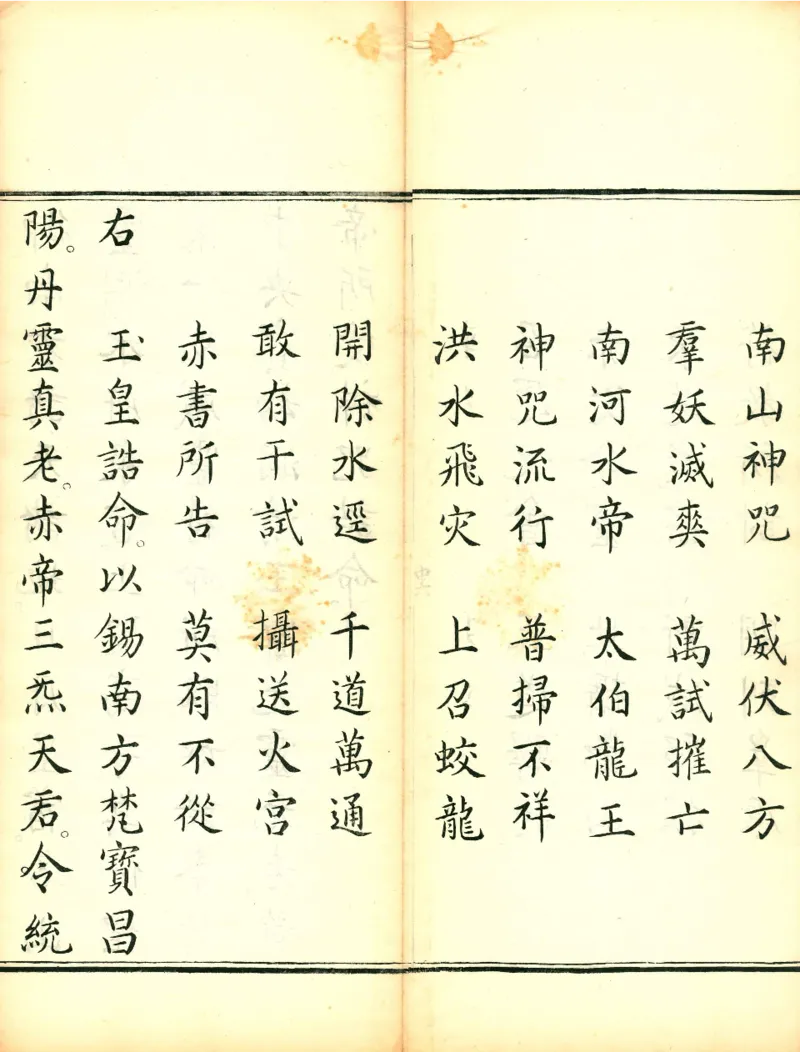 南山神咒　威伏八方
羣妖滅爽　萬試摧亡
南河水帝　太伯龍王
神咒流行　普掃不祥
洪水飛灾　上召蛟龍
開除水逕　千道萬通
敢有干試　攝送火宮
赤書所告　莫有不從
右　玉皇誥命。以錫南方梵寶昌
陽。丹靈真老。赤帝三炁天君。令統